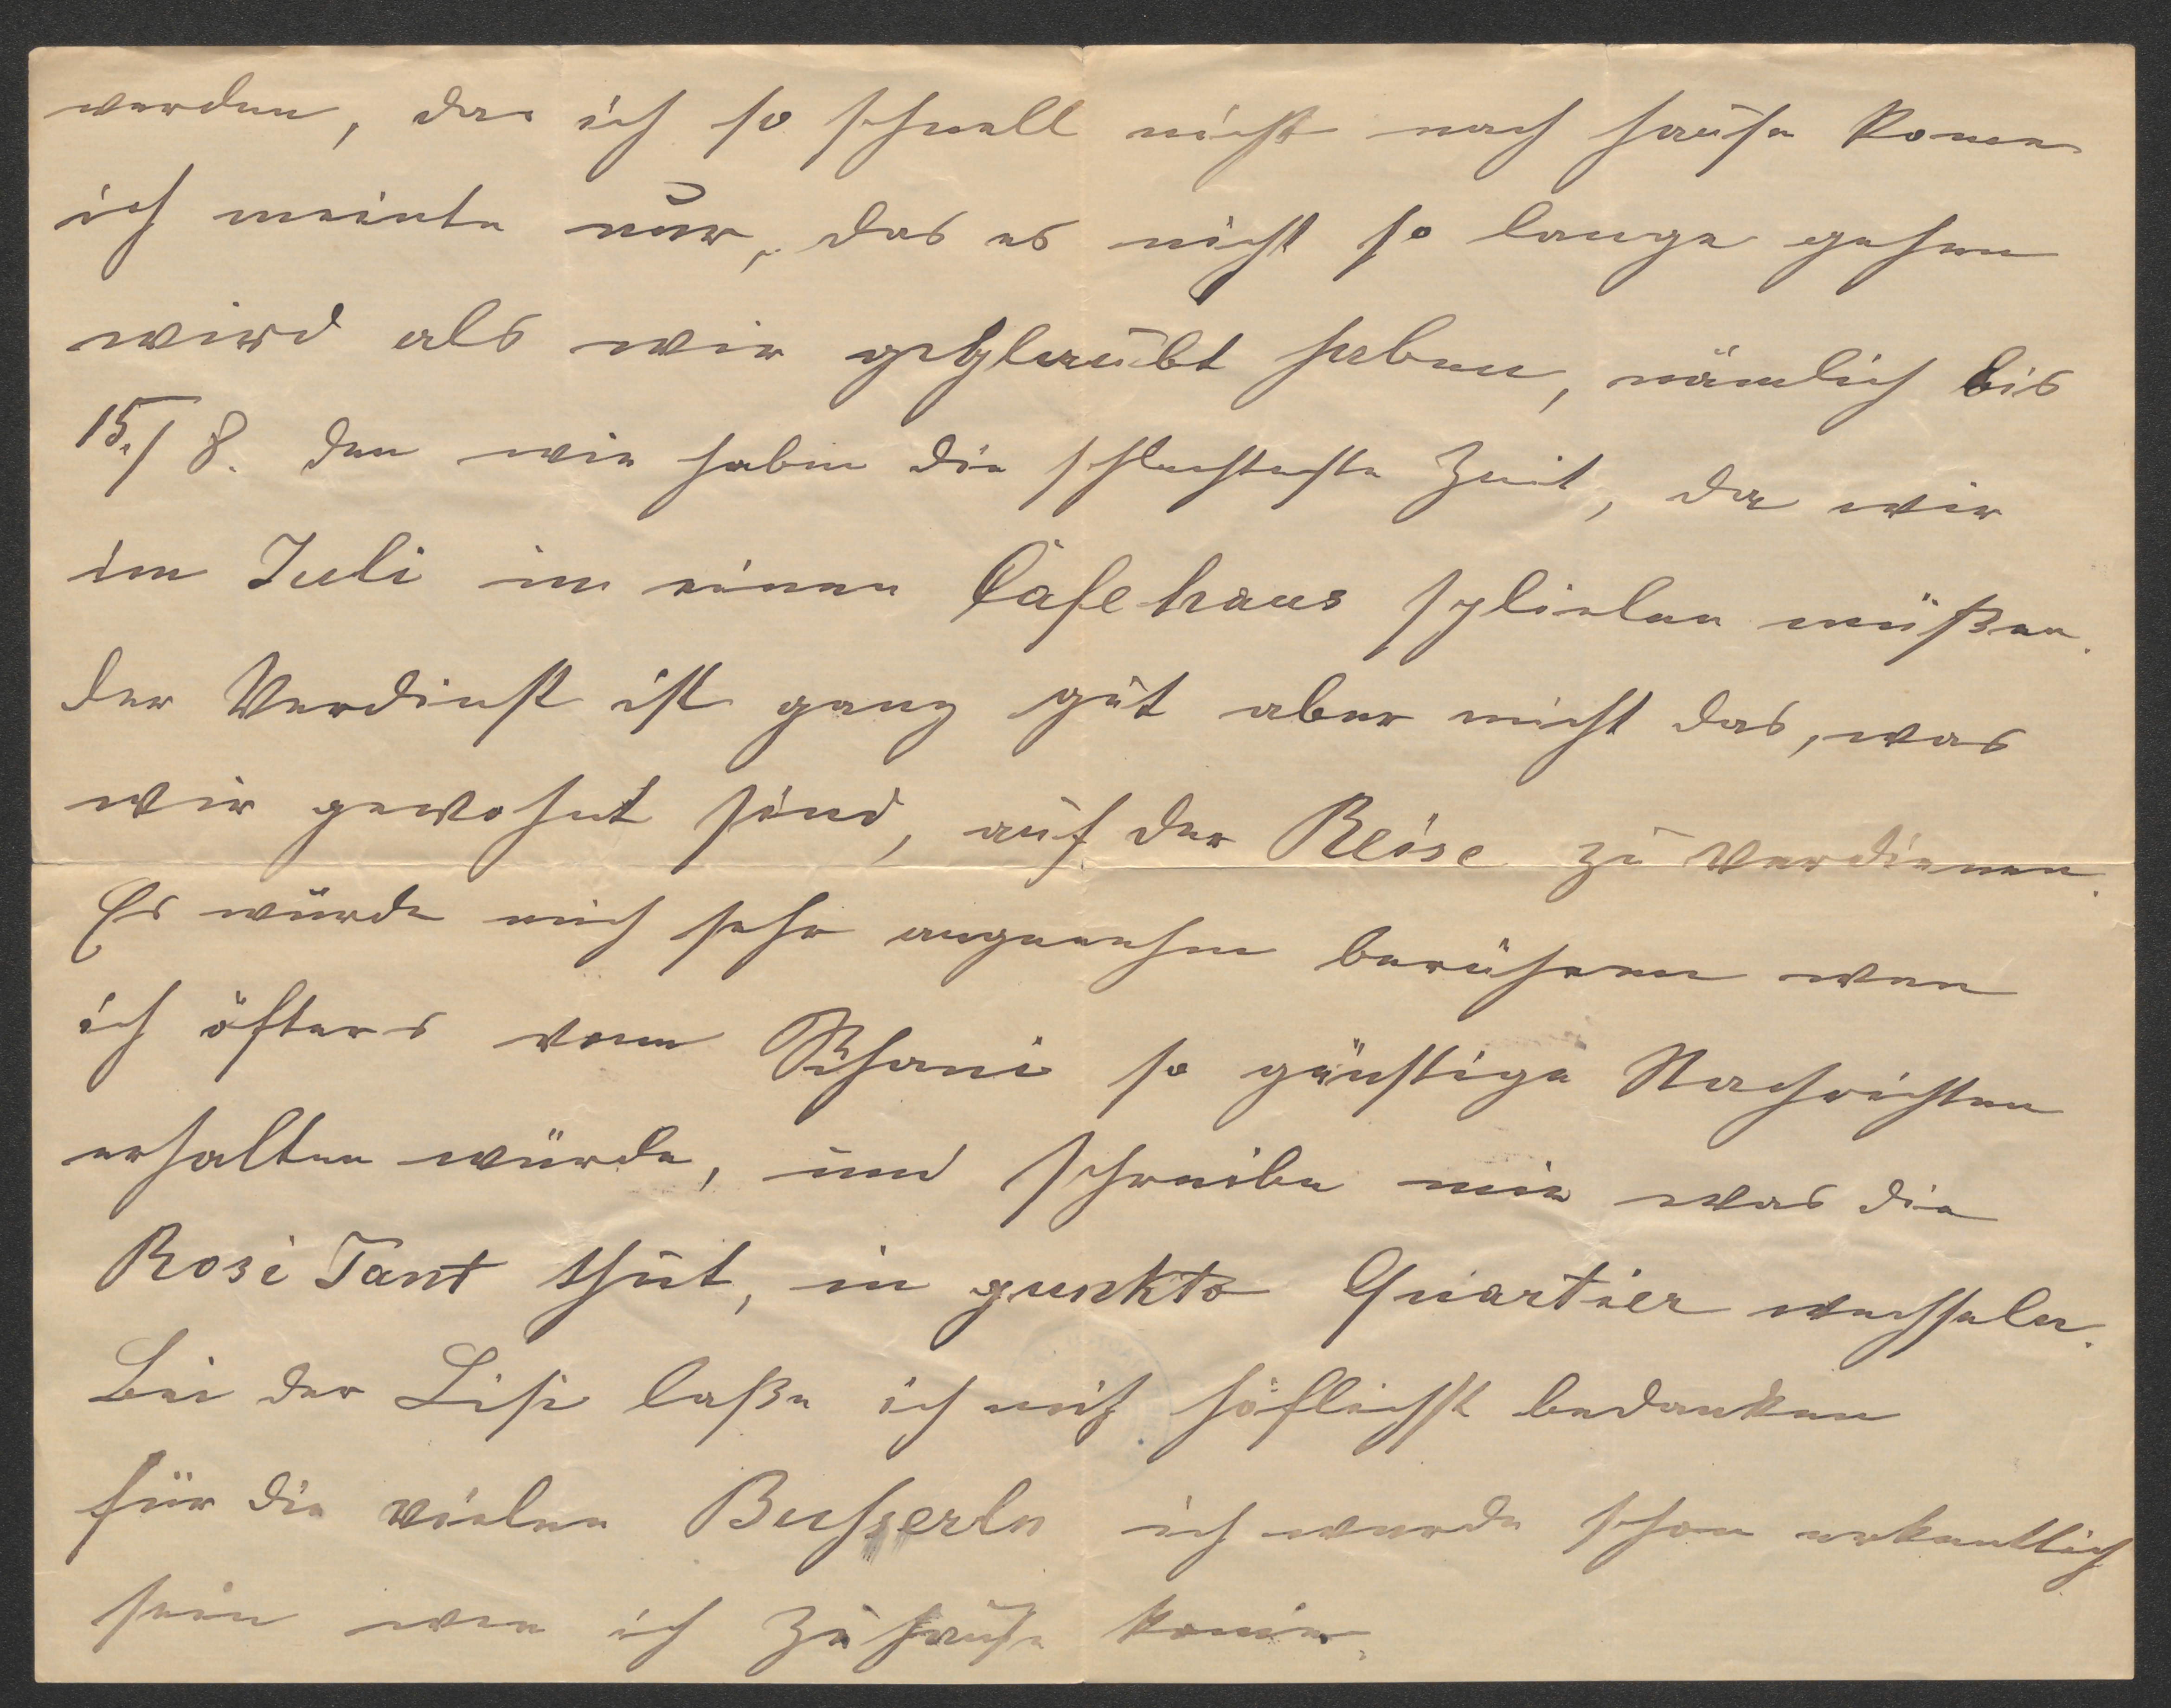 werden, das ich so schnell nicht nach hause kome
ich meinte nur, das es nicht so lange gehen
wird als wir geglaubt haben, nämlich bis
15./8. den wir haben die schlechteste Zeit, da wir
im Juli in einen Cafehaus spielen müßen.
der Verdinst ist ganz gut aber nicht das, was
wir gewohnt sind, auf der Reise zu verdienen.
Es würde mich sehr angenehm berühren wen
ich öfters vom Schani so günstige Nachrichten
erhalten würde, und schreibe mir was die
Rosi Tant thut, in punkto Quartier wechseln.
Bei der Lisi laße ich mich höflichst bedanken
für die vielen Busserln ich werde schon erkentlich
sein wen ich zuhause kome.